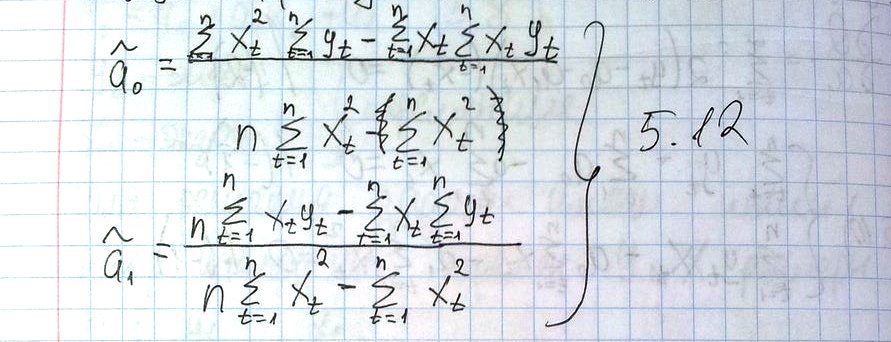 ã₀ = (∑_{t=1}^{n} x_t² ∑_{t=1}^{n} y_t − ∑_{t=1}^{n} x_t ∑_{t=1}^{n} x_t y_t) / (n ∑_{t=1}^{n} x_t² − ∑_{t=1}^{n} x_t²)
5.12
ã₁ = (n ∑_{t=1}^{n} x_t y_t − ∑_{t=1}^{n} x_t ∑_{t=1}^{n} y_t) / (n ∑_{t=1}^{n} x_t² − ∑_{t=1}^{n} x_t²)